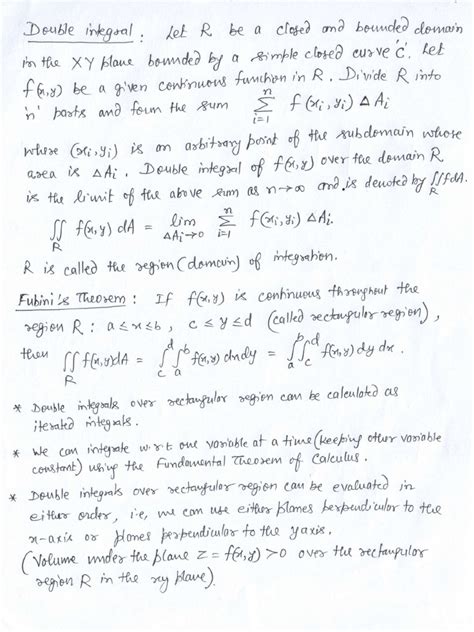 Double integral : Let R be a closed and bounded domain
in the XY plane bounded by a simple closed curve 'C'. Let
f(x,y) be a given continuous function in R. Divide R into
'n' parts and form the sum \sum_{i=1}^{n} f(x_i, y_i) ΔA_i
where (x_i, y_i) is an arbitrary point of the subdomain whose
area is ΔA_i. Double integral of f(x,y) over the domain R
is the limit of the above sum as n→∞ and is denoted by ∬_R fdA.
∬_R f(x,y) dA = lim_{ΔA_i→0} \sum_{i=1}^{n} f(x_i, y_i) ΔA_i.
R is called the region (domain) of integration.
Fubini's Theorem : If f(x,y) is continuous throughout the
region R : a ≤ x ≤ b, c ≤ y ≤ d (called rectangular region),
then ∬_R f(x,y)dA = ∫_c^d ∫_a^b f(x,y) dxdy = ∫_a^b ∫_c^d f(x,y) dy dx.
* Double integrals over rectangular region can be calculated as
iterated integrals.
* We can integrate w.r.t one variable at a time (keeping other variable
constant) using the Fundamental Theorem of Calculus.
* Double integrals over rectangular region can be evaluated in
either order, i.e, we can use either planes perpendicular to the
x-axis or planes perpendicular to the y axis.
(Volume under the plane z = f(x,y) > 0 over the rectangular
region R in the xy plane)